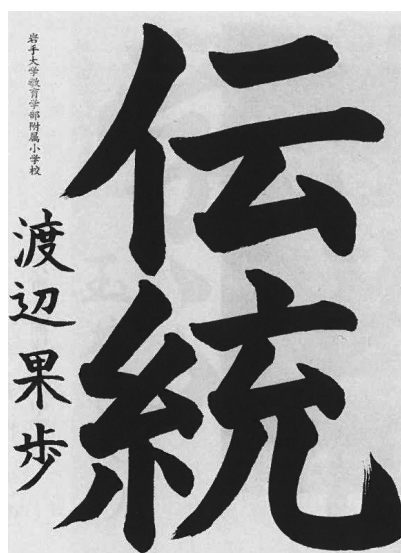 伝統
岩手大学教育学部附属小学校
渡辺果歩